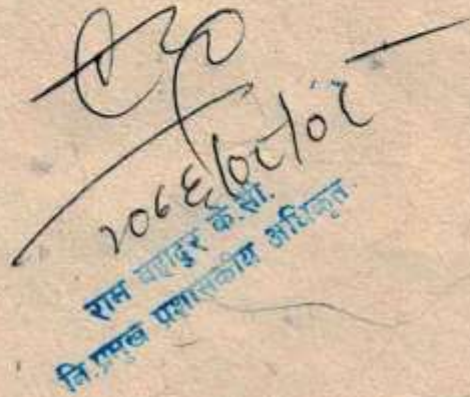 २०७६/०८/०८
राम बहादुर के.सी.
नि.प्रमुख प्रशासकीय अधिकृत